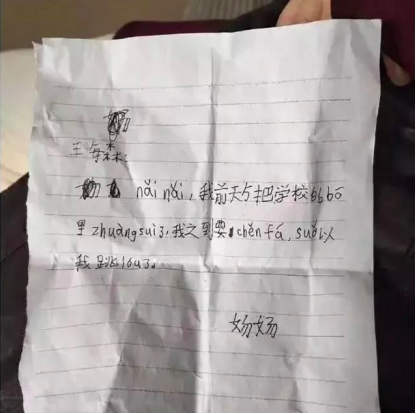 nǎi nǎi,我前天 把学校的bō
里zhuàngsuì了,我之到要chěn fá,suǒ以
我跳lóu了。